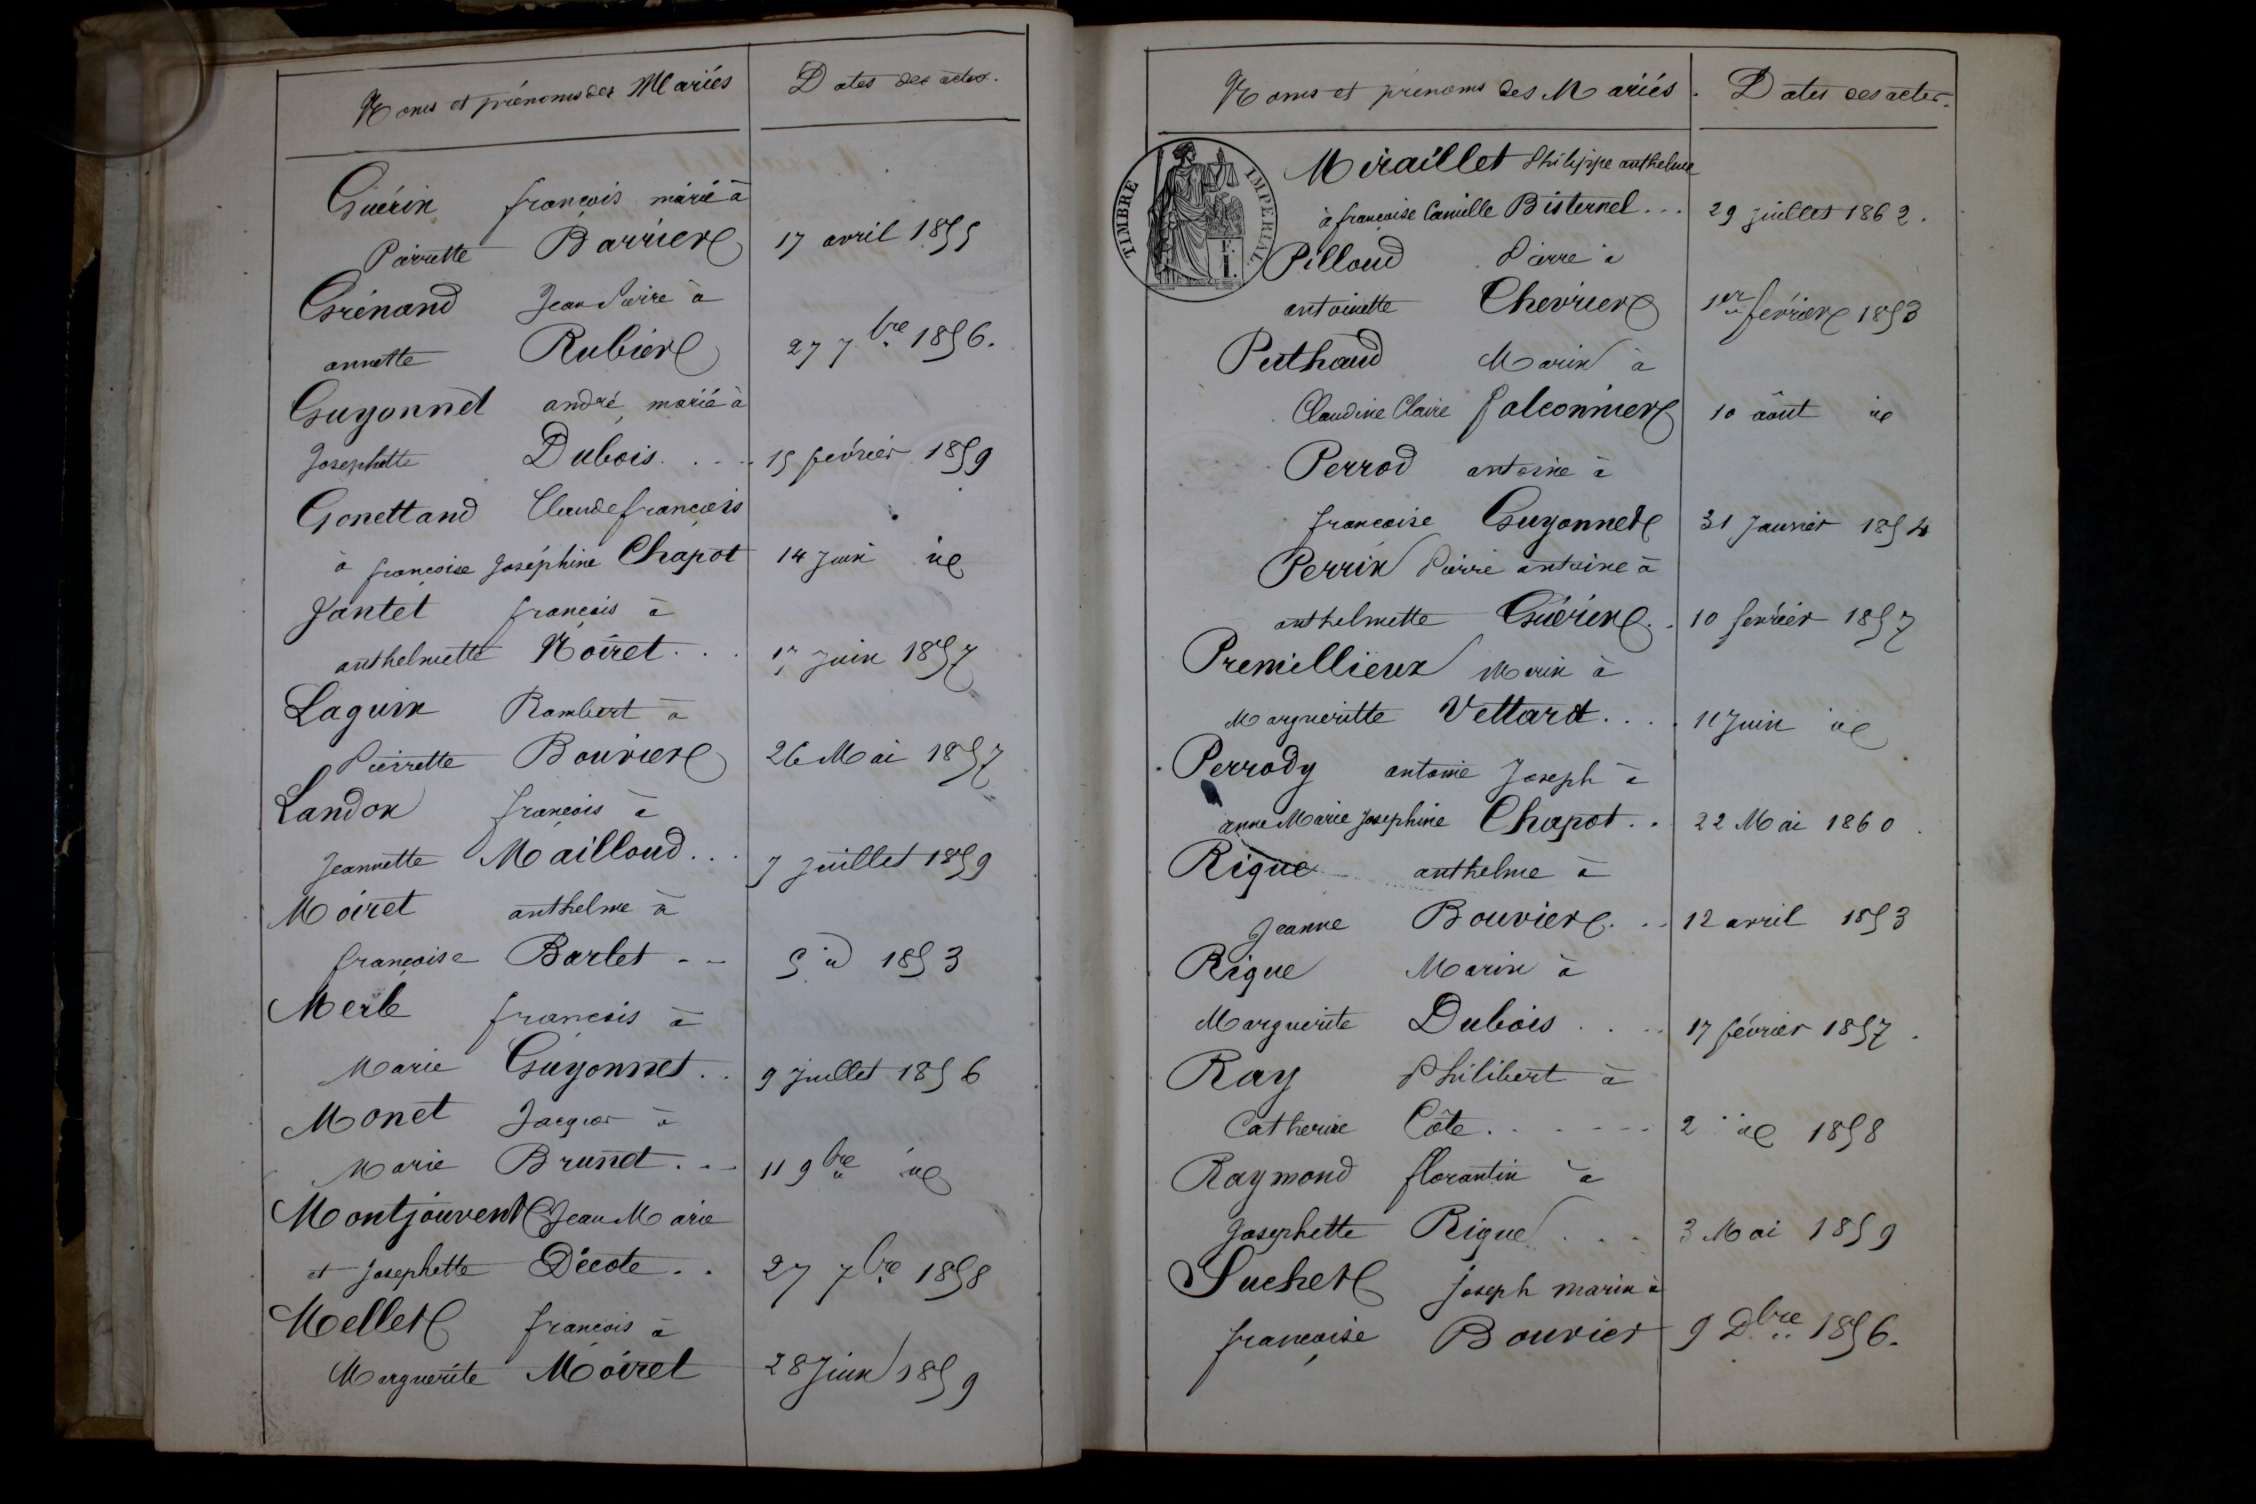 Noms et prénoms des Mariés
Dates des actes.
Guérin françois marié à
Pierrette Barrier 17 avril 1855
Grénand Jean Pierre à
annette Rubier 27 7bre 1856.
Guyonnet andré marié à
Josephette Dubois. . . . 15 février 1859
Gonettand Claude françois
à françoise Joséphine Chapot 14 Juin id
Jantet françois à
anthelmette Noiret . . . Juin 1857
Laguin Rambert à
Pierrette Bouvier 26 Mai 1857
Landon françois à
Jeannette Mailloud . . . 7 Juillet 1859
Moiret anthelme à
françoise Barlet - - 5 id 1853
Merle françois à
Marie Guyonnet . . 9 Juillet 1856
Monet Jacques à
Marie Brunet . . - 11 9bre id
Montjouvent Jean Marie
et Josephette Décote . . 27 7bre 1858
Mellet françois à
Marguerite Moiret 28 Juin 1859
Noms et prénoms des Mariés.
Dates des actes.
TIMBRE IMPERIAL
Miraillet Philippe anthelme
à françoise Camille Bisternel . . . 29 juillet 1862.
Pilloud Pierre à
antoinette Chevrier 1er février 1853
Puthaud Marin à
Claudine Claire falconnier 10 août id
Perrod antoine à
francoise Guyonnet 31 Janvier 1854
Perrin Pierre antoine à
anthelmette Guérin . . 10 février 1857
Premillieux Marin à
Margueritte Vettard . . . . 11 Juin id
Perrody antoine Joseph à
anne Marie Josephine Chapot . . 22 Mai 1860
Rigue anthelme à
Jeanne Bouvier . . . 12 avril 1853
Rigue Marin à
Marguerite Dubois . . . . 17 février 1857.
Ray Philibert à
Catherine Côte . . . - - - - 2 id 1858
Raymond florantin à
Josephette Rigue . . . 3 Mai 1859
Suchet Joseph marin à
françoise Bouvier 9 Dbre 1856.